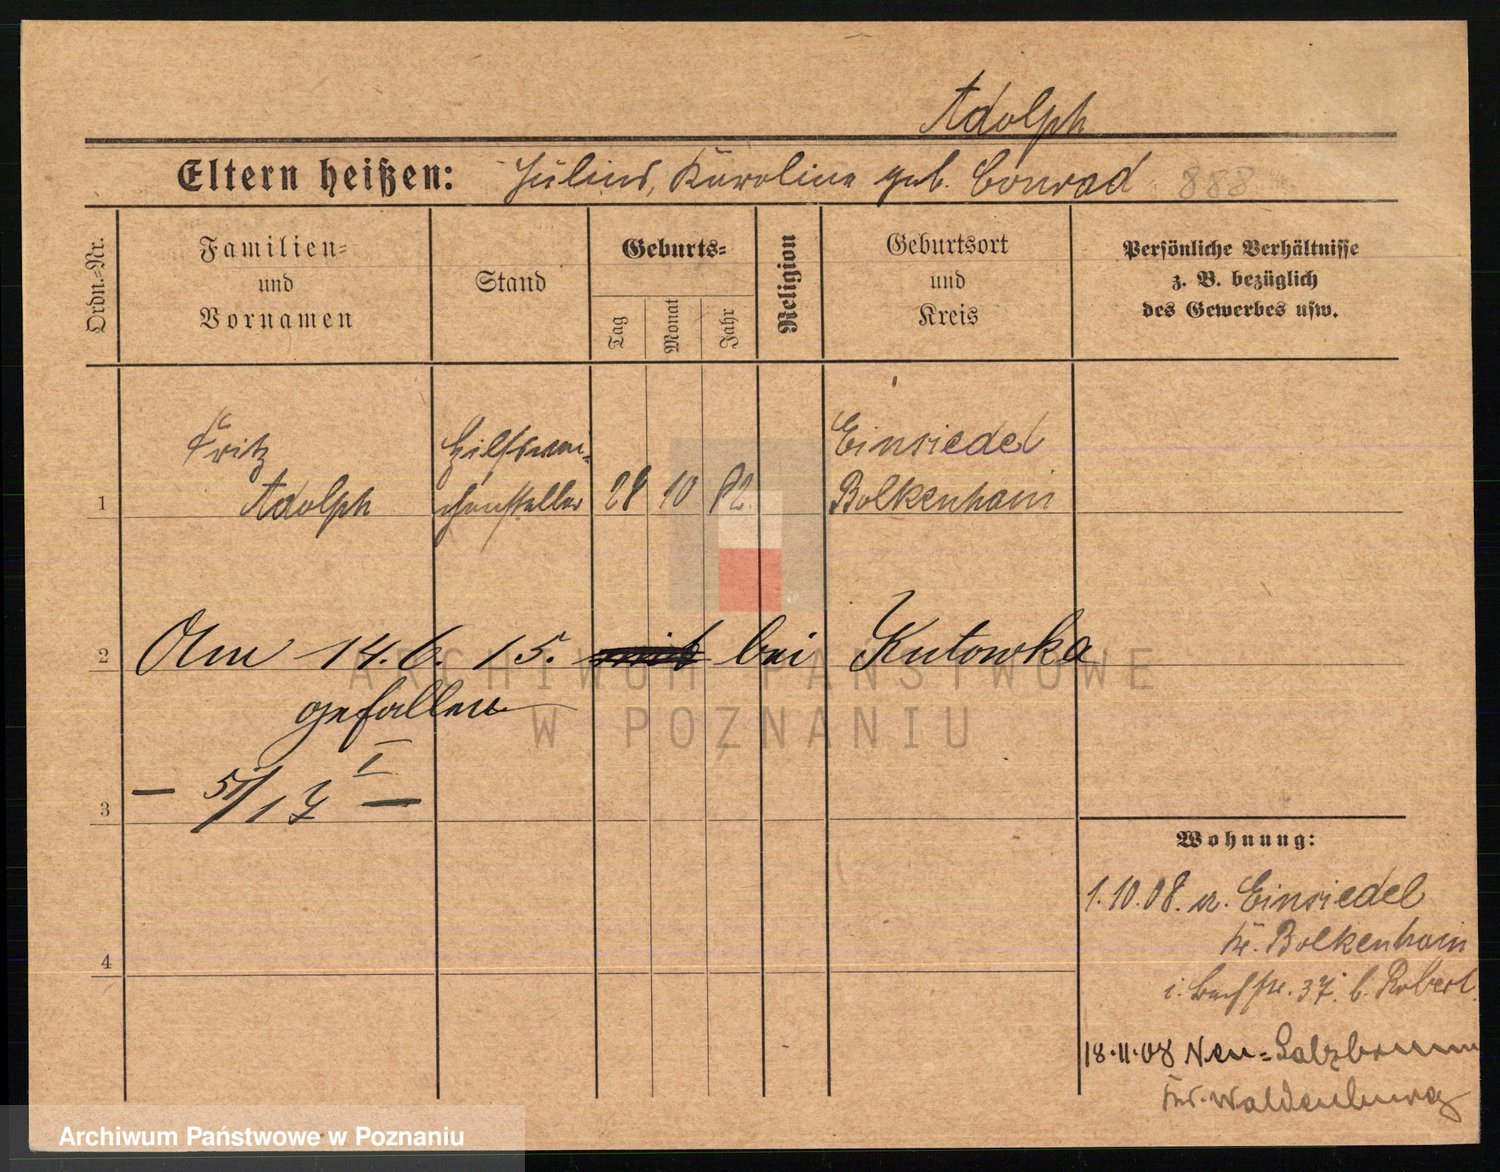 Adolph
Eltern heißen: Julius, Karoline geb. Conrad 888
Ordn.=Nr.
Familien=
und
Vornamen
Stand
Geburts=
Tag
Monat
Jahr
Religion
Geburtsort
und
Kreis
Persönliche Verhältnisse
z. B. bezüglich
des Gewerbes usw.
Fritz Hilfswei= Einsiedel
1 Adolph chensteller 28 10 82 Bolkenhain
2 Am 14. 6. 15. bei Kutowka
gefallen
I
3 — 5/1 17 —
4
Wohnung:
1.10.08. a. Einsiedel
Kr. Bolkenhain
i. 37. b. Robert
18.11.08 Neu=Salzbrunn
Waldenburg
ARCHIWUM PAŃSTWOWE
W POZNANIU
Archiwum Państwowe w Poznaniu